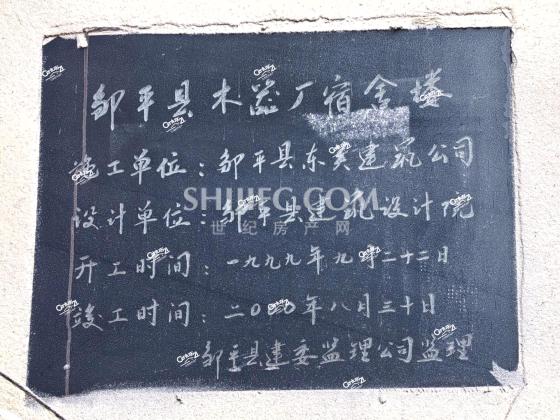 邹平县木器厂宿舍楼
施工单位：邹平县东关建筑公司
设计单位：邹平县建筑设计院
开工时间：一九九九年九月二十二日
竣工时间：二000年八月三十日
邹平县建委监理公司监理
SHIJIFC.COM
世纪房产网